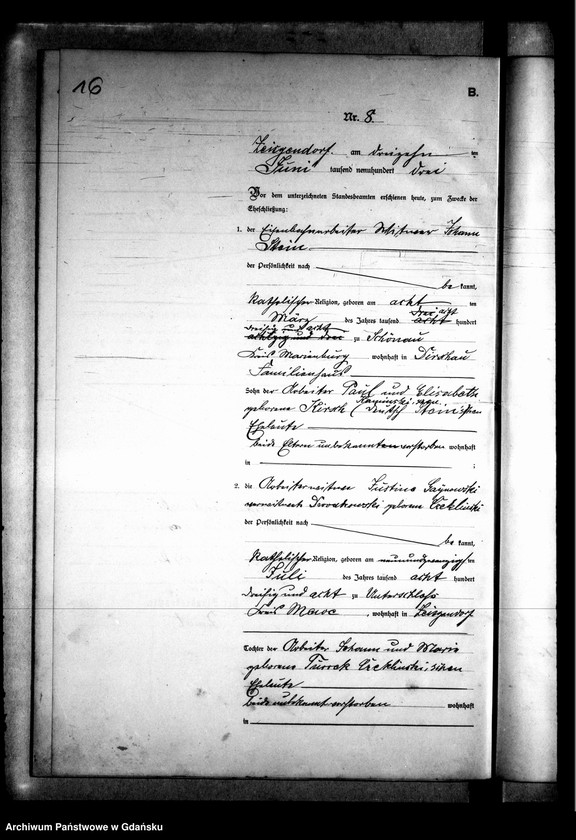 16
B.
Nr. 8.
am dreizehn ten
Juni tausend neunhundert drei
Vor dem unterzeichneten Standesbeamten erschienen heute, zum Zwecke der
Eheschließung:
1. der Eisenbahnarbeiter Witwer Johann
Stein
der Persönlichkeit nach
be kannt,
katholischer Religion, geboren am acht ten
März des Jahres tausend acht hundert
dreißig und acht
achtzig und drei zu Schönau
Kreis Marienburg wohnhaft in Dirschau
Familienhaus
Sohn der Arbeiter Paul und Elisabeth
geborene Kirsch (deutsch Stein schen
Eheleute
beide Eltern unbekannt verstorben wohnhaft
in ;
2. die Arbeiterwitwe Justine
geborene Czeklinski
der Persönlichkeit nach
be kannt,
katholischer Religion, geboren am neunundzwanzig ten
Juli des Jahres tausend acht hundert
dreißig und acht zu Unterschloß
Kreis Mewe, wohnhaft in
Tochter der Arbeiter Johann und Maria
geborene Turrek Czeklinski schen
Eheleute
beide unbekannt verstorben wohnhaft
in
Archiwum Państwowe w Gdańsku